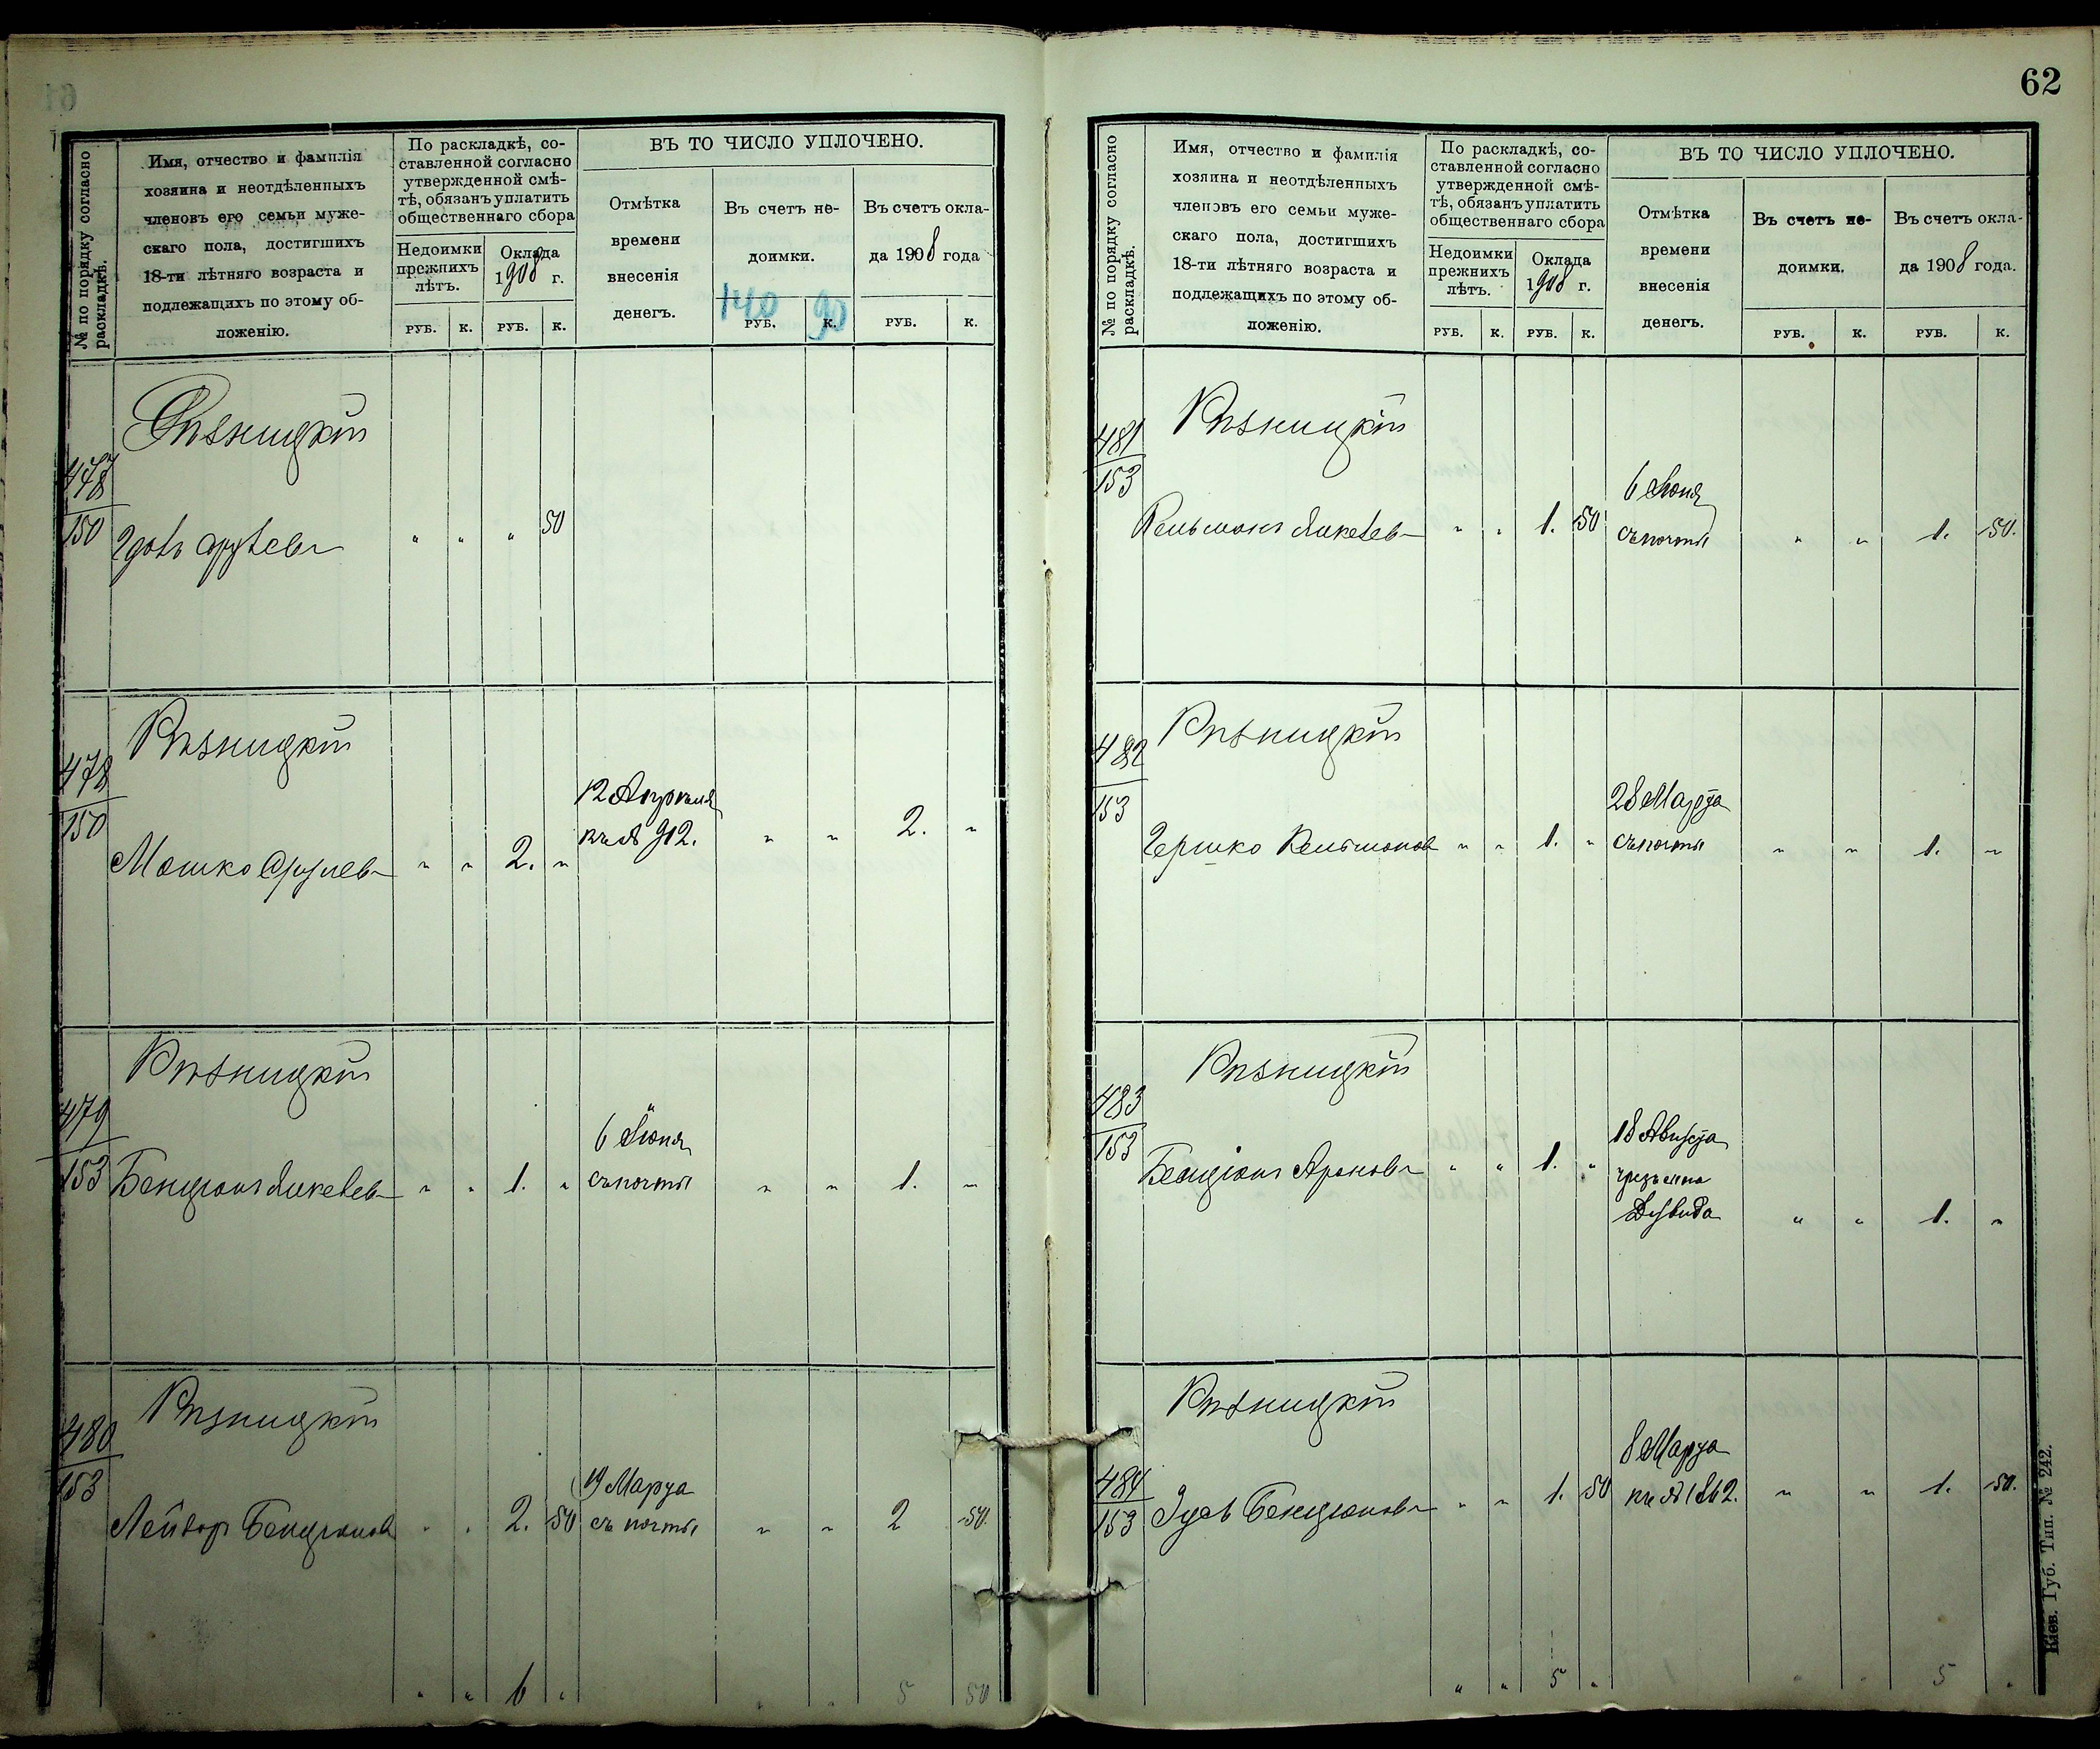 62
№ по порядку согласно раскладкѣ.
Имя, отчество и фамилія
хозяина и неотдѣленныхъ
членовъ его семьи муже-
скаго пола, достигшихъ
18-ти лѣтняго возраста и
подлежащихъ по этому об-
ложенію.
По раскладкѣ, со-
ставленной согласно
утвержденной смѣ-
тѣ, обязанъ уплатить
общественнаго сбора
Недоимки
прежнихъ
лѣтъ.
Оклада
1908 г.
ВЪ ТО ЧИСЛО УПЛОЧЕНО.
Отмѣтка
времени
внесенія
денегъ.
Въ счетъ не-
доимки.
Въ счетъ окла-
да 1908 года
140 90
РУБ. К. РУБ. К. РУБ. К. РУБ. К.
Рѣзницкій
477
150
" " " 50
Рѣзницкій
478
150
12 Апрѣля
Мошко " " 2. " 912. " " 2. "
Рѣзницкій
479
153
6 Іюня
Бенціонъ " " 1. " съ почты " " 1. "
Рѣзницкій
480
153
19 Марта
Лейзоръ Бенціоновъ " " 2. 50 съ почты " " 2 50.
" " 6 " " " 5 50
№ по порядку согласно раскладкѣ.
Имя, отчество и фамилія
хозяина и неотдѣленныхъ
членовъ его семьи муже-
скаго пола, достигшихъ
18-ти лѣтняго возраста и
подлежащихъ по этому об-
ложенію.
По раскладкѣ, со-
ставленной согласно
утвержденной смѣ-
тѣ, обязанъ уплатить
общественнаго сбора
Недоимки
прежнихъ
лѣтъ.
Оклада
1908 г.
ВЪ ТО ЧИСЛО УПЛОЧЕНО.
Отмѣтка
времени
внесенія
денегъ.
Въ счетъ не-
доимки.
Въ счетъ окла-
да 1908 года.
РУБ. К. РУБ. К. РУБ. К. РУБ. К.
Рѣзницкій
481
153
6 Іюня
Кельманъ " " 1. 50 съ почты " " 1. 50.
Рѣзницкій
482
153
28 Марта
Гершко Кельмановъ " " 1. " съ почты " " 1. "
Рѣзницкій
483
153
18 Августа
Бенціонъ Ароновъ " " 1. "
" " 1. "
Рѣзницкій
484
153
8 Марта
Бенціоновъ " " 1. 50 1862. " " 1. 50.
" " 5 " " " 5 "
Кіев. Губ. Тип. № 242.